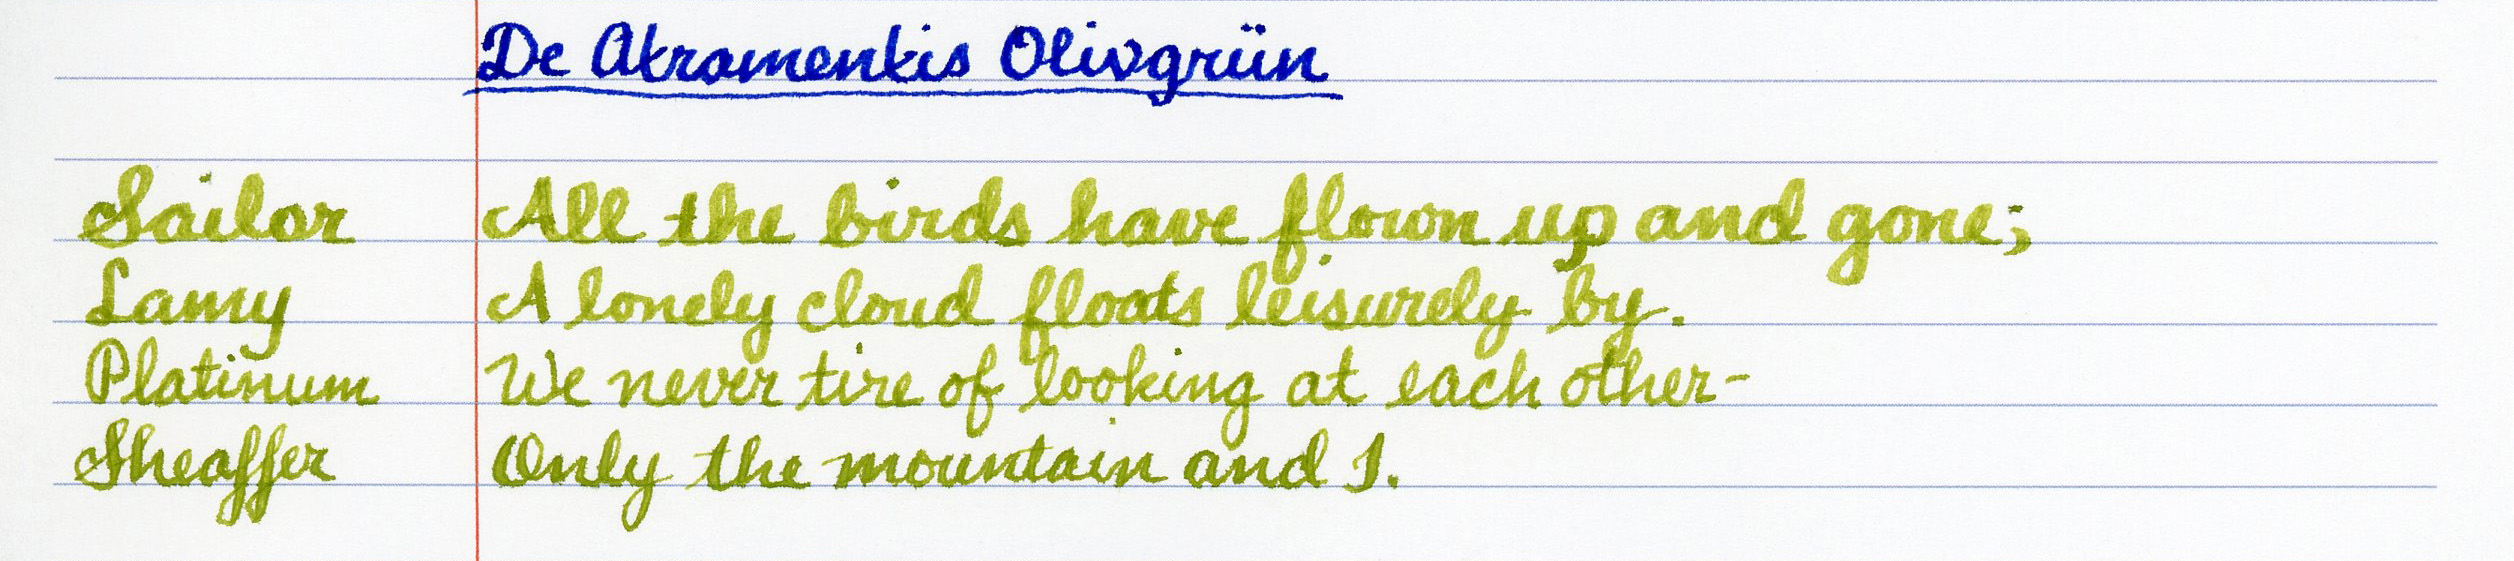 De Akramenkis Olivgrün
Sailor All the birds have flown up and gone;
Lamy A lonely cloud floats leisurely by.
Platinum We never tire of looking at each other-
Sheaffer Only the mountain and I.